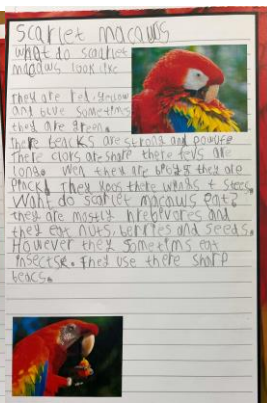 Scarlet macaws
What do scarlet
macaws look like
They are red, yellow
and blue Sometimes
they are green.
There beacks are strong and
There claws are share there
are
long. Wen they are they are
Black They there wings +
Want do scarlet macaws eat?
they are mostly and
they eat nuts, berries and seeds.
However they sometims eat
insects. They use there sharp
beacs.